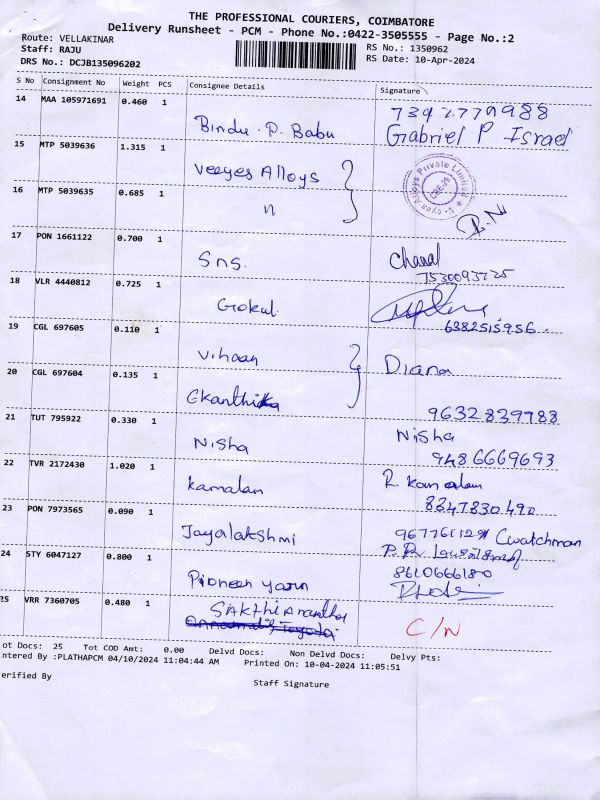 THE PROFESSIONAL COURIERS, COIMBATORE
Delivery Runsheet - PCM - Phone No.:0422-3505555 - Page No.:2
Route: VELLAKINAR
Staff: RAJU
RS No.: 1350962
DRS No.: DCJB135096202
RS Date: 10-Apr-2024
S No Consignment No Weight PCS Consignee Details Signature
14 MAA 105971691 0.460 1
Bindu. P. Babu Gabriel P Israel
15 MTP 5039636 1.315 1
Veeyes Alloys
16 MTP 5039635 0.685 1
"
17 PON 1661122 0.700 1
Sns.
7530093725
18 VLR 4440812 0.725 1
Gokul
6382515956
19 CGL 697605 0.110 1
Vihaan Diana
20 CGL 697604 0.135 1
9632839788
21 TUT 795922 0.330 1
Nisha Nisha
9486669693
22 TVR 2172430 1.020 1
Kamalan
8347830490
23 PON 7973565 0.090 1
Jayalakshmi
24 STY 6047127 0.800 1
8610666180
Pioneer
25 VRR 7360705 0.480 1
C/N
ot Docs: 25 Tot COD Amt: 0.00 Delvd Docs: Non Delvd Docs: Delvy Pts:
ntered By :PLATHAPCM 04/10/2024 11:04:44 AM Printed On: 10-04-2024 11:05:51
erified By
Staff Signature